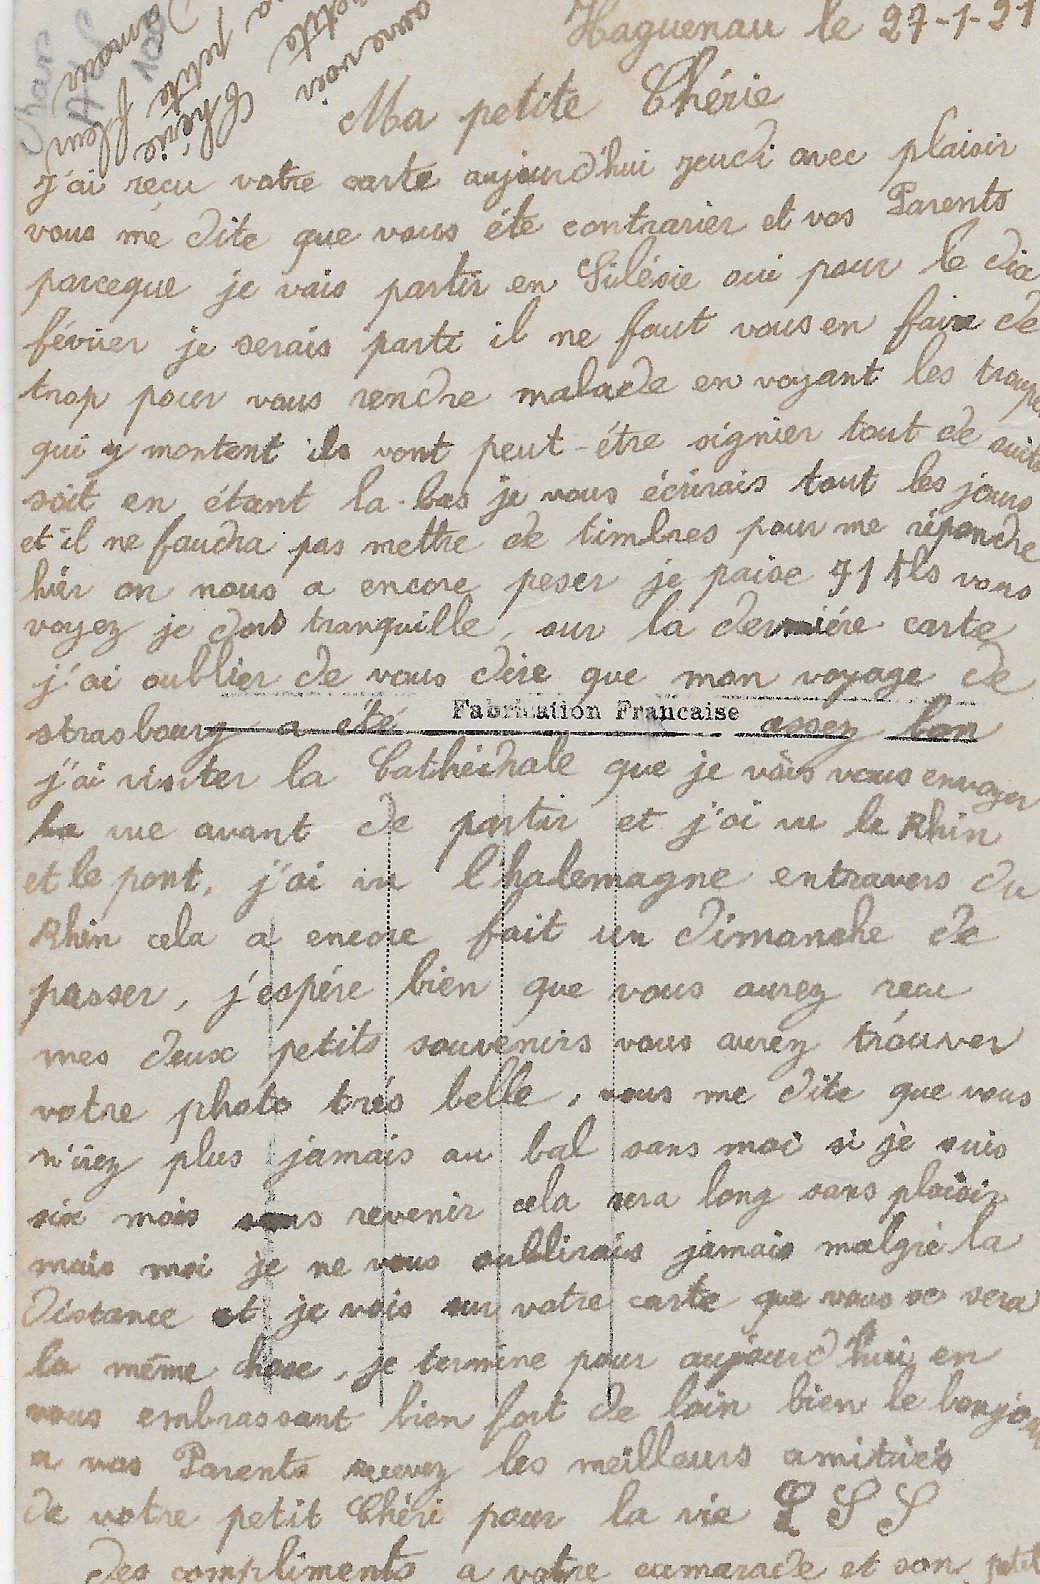 Haguenau le 27-1-21
Ma petite Chérie
J'ai reçu votre carte aujourd'hui jeudi avec plaisir
vous mé dite que vous éte contrarier et vos Parents
parceque je vais partir en Silésie oui pour le dix
février je serais parti il ne faut vous en faire de
trop pour vous rendre malade en voyant les troupes
qui y montent ils vont peut-étre signier tout de suite
soit en étant la-bas je vous écrirais tout les jours
et il ne faudra pas mettre de timbres pour me répondre
hier on nous a encore peser je paise 71 vous
voyez je dors tranquille, sur la derniére carte
j'ai oublier de vous dire que mon voyage de
strasbourg a été assez bon
Fabrication Francaise
j'ai visiter la Cathédrale que je vais vous envoyer
la vue avant de partir et j'ai vu le Rhin
et le pont, j'ai vu l'halemagne entravers du
Rhin cela a encore fait un dimanche de
passer, j'espére bien que vous aurez recu
mes deux petits souvenirs vous aurez trouver
votre photo trés belle, vous me dite que vous
n'irez plus jamais au bal sans moi si je suis
six mois sans revenir cela sera long sans plaisir
mais moi je ne vous oublirais jamais malgré la
distance et je vois sur votre carte que vous se sera
la même chose, je termine pour aujourd'hui en
vous embrassant bien fort de loin bien le bonjour
a vos Parents recevez les meilleurs amitiés
de votre petit Chéri pour la vie
des compliments a votre camarade et son petit
Chérie
petite
fleur
amour
petite